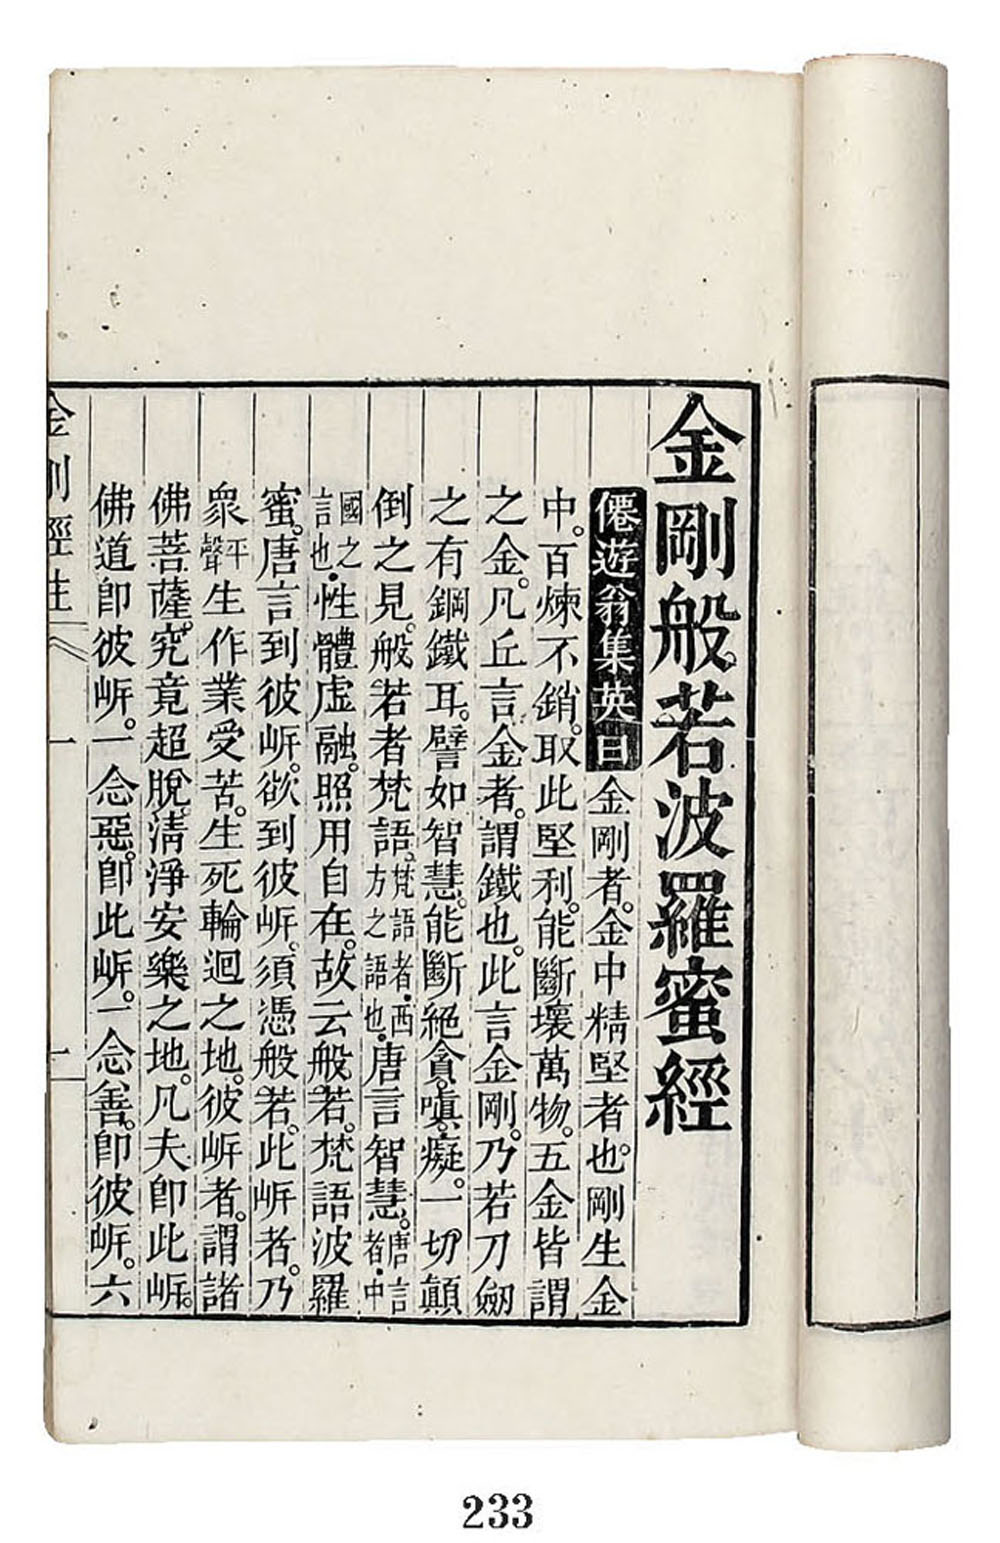 金剛般若波羅蜜經
僊遊翁集英曰金剛者。金中精堅者也。剛生金
中。百煉不銷。取此堅利。能斷壞萬物。五金皆謂
之金。凡丘言金者。謂鐵也。此言金剛。乃若刀劒
之有鋼鐵耳。譬如智慧。能斷絕貪。嗔。癡。一切顚
倒之見。般若者梵語。梵語者・西方之語也・唐言智慧。唐言者・中
國之言也・性體虛融。照用自在。故云般若。梵語波羅
蜜。唐言到彼岍。欲到彼岍。須憑般若。此岍者。乃
衆平聲生作業受苦。生死輪迴之地。彼岍者。謂諸
佛菩薩。究竟超脫。淸淨安樂之地。凡夫卽此岍。
佛道卽彼岍。一念惡。卽此岍。一念善。卽彼岍。六
金剛經註 一 二
233